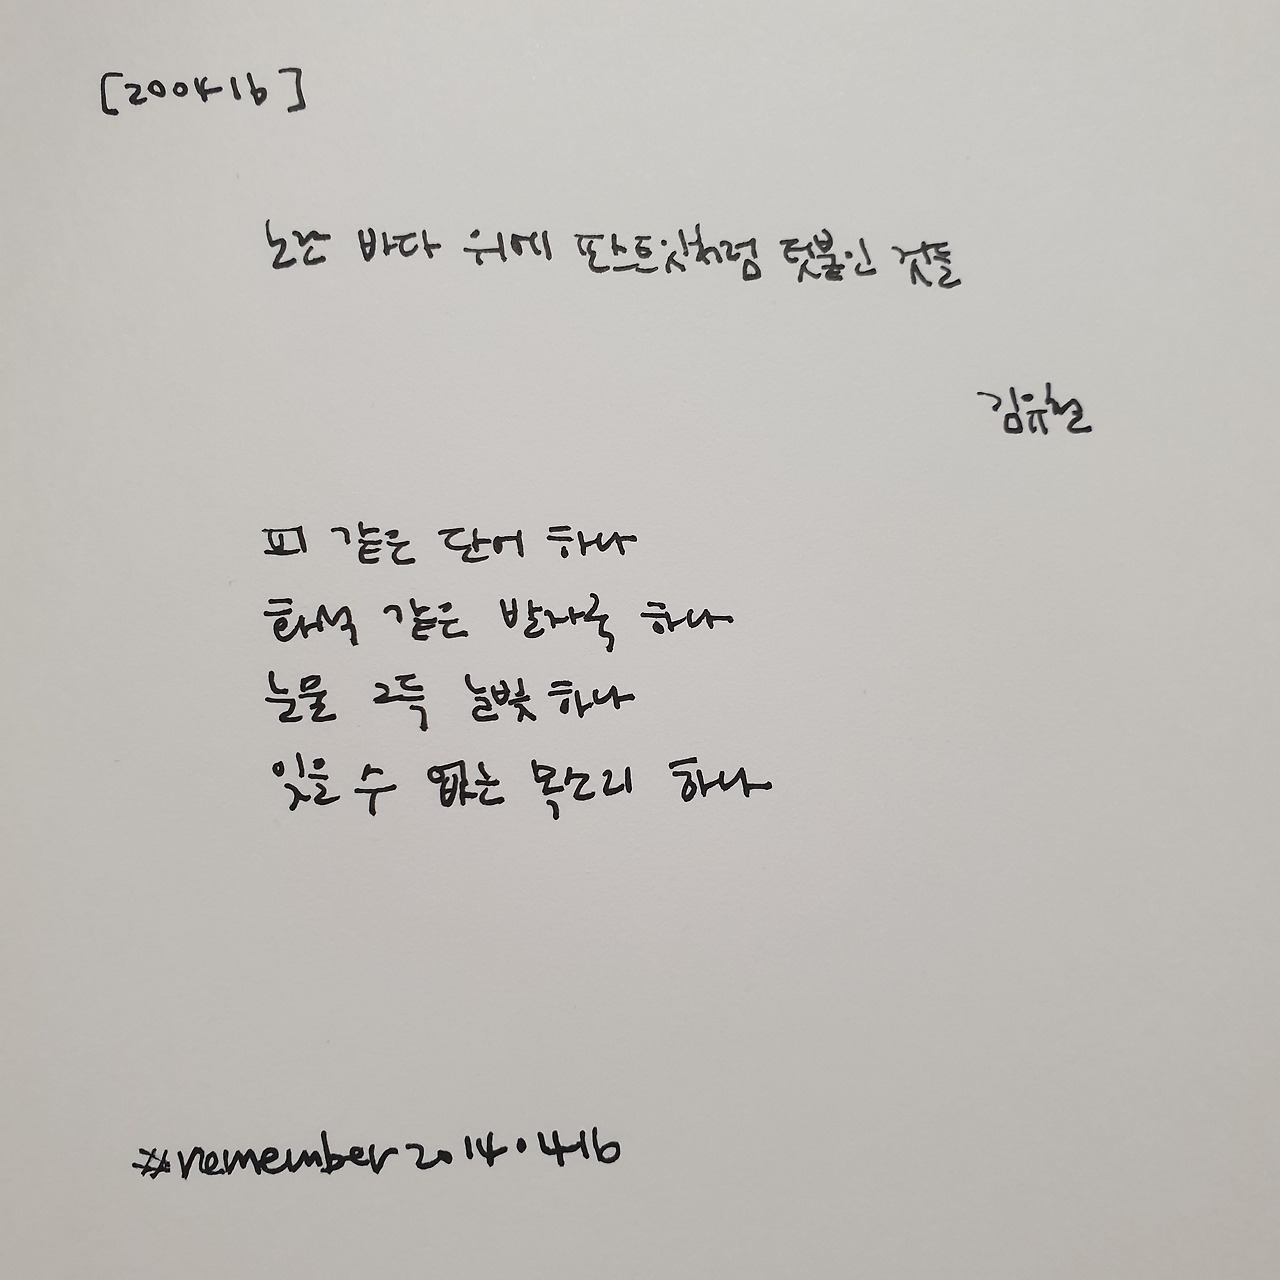 [200416]
노란 바다 위에 포스트잇처럼 덧붙인 것들
김유철
피 같은 단어 하나
화석 같은 발자국 하나
눈물 그득 눈빛 하나
잊을 수 없는 목소리 하나
#remember2014.416